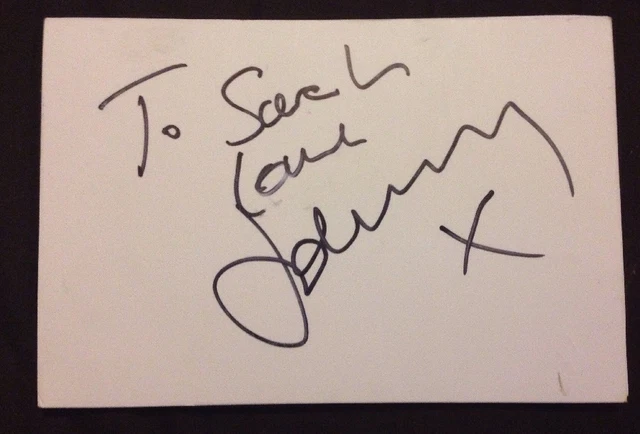 To Sarah
Love
Johnny
X